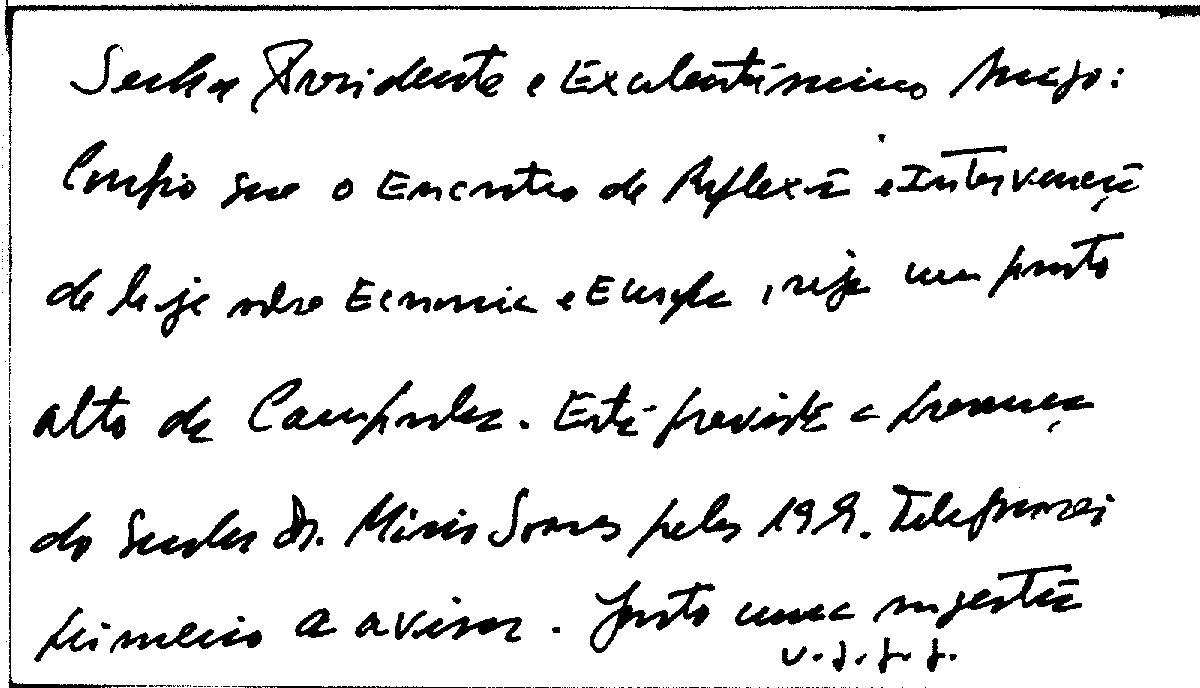 Senhor Presidente e Excelentíssimo Amigo:
Confio que o Encontro de Reflexão e Intervenção
de hoje sobre Economia e Europa, seja um ponto
alto da Campanha. Está prevista a presença
do Senhor Dr. Mário Soares pelas 19 h. Telefonarei
primeiro a avisar. Junto uma sugestão
v.s.f.f.